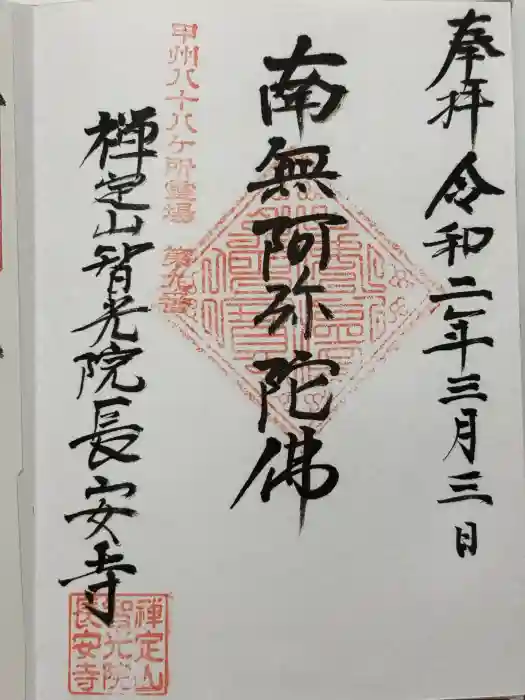 奉拝 令和二年三月三日
南無阿弥陀佛
甲州八十八ケ所霊場 第九番
禅定山智光院長安寺
禅定山
智光院
長安寺